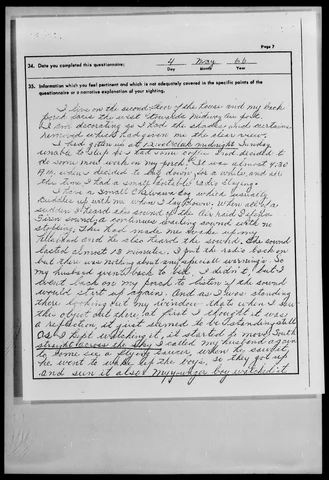 Page 7
34. Date you completed this questionnaire:
4 May 66
Day Month Year
35. Information which you feel pertinent and which is not adequately covered in the specific points of the
questionnaire or a narrative explanation of your sighting.
I live on the second floor of the house and my back
porch faces the west towards Midway air port.
I am decorating so I had the shades, and curtains
removed which had given me the clear view.
I had gotten up at 12 o'clock midnight Sunday
unable to sleep so I had some coffee and decided to
do some more work on my porch. It was almost 4:30
A.M. when I decided to lay down for a while, and all
this time I had a small portable radio playing.
I have a small Chihuahua dog which usually
cuddles up with me when I lay down. When all of a
sudden I heard the sound of the Air raid
Siren sounding a continuous wailing sound with no
stopping. This had made me wake up my
husband and he also heard the sound, the sound
lasted almost 13 minutes. I put the radio back on
but there was nothing about any special warning's. So
my husband went back to bed, I didn't, but I
went back on my porch to listen if the sound
would start up again. And as I was standing
there looking out my window that's when I saw
this object out there, at first I thought it was
a reflection, it just seemed to be standing still
As I kept watching it, it started to move South
straight across the sky I called my husband again
to come see a flying saucer, when he saw it,
he went to wake up the boys, so they got up
and seen it also. My younger boy watched it